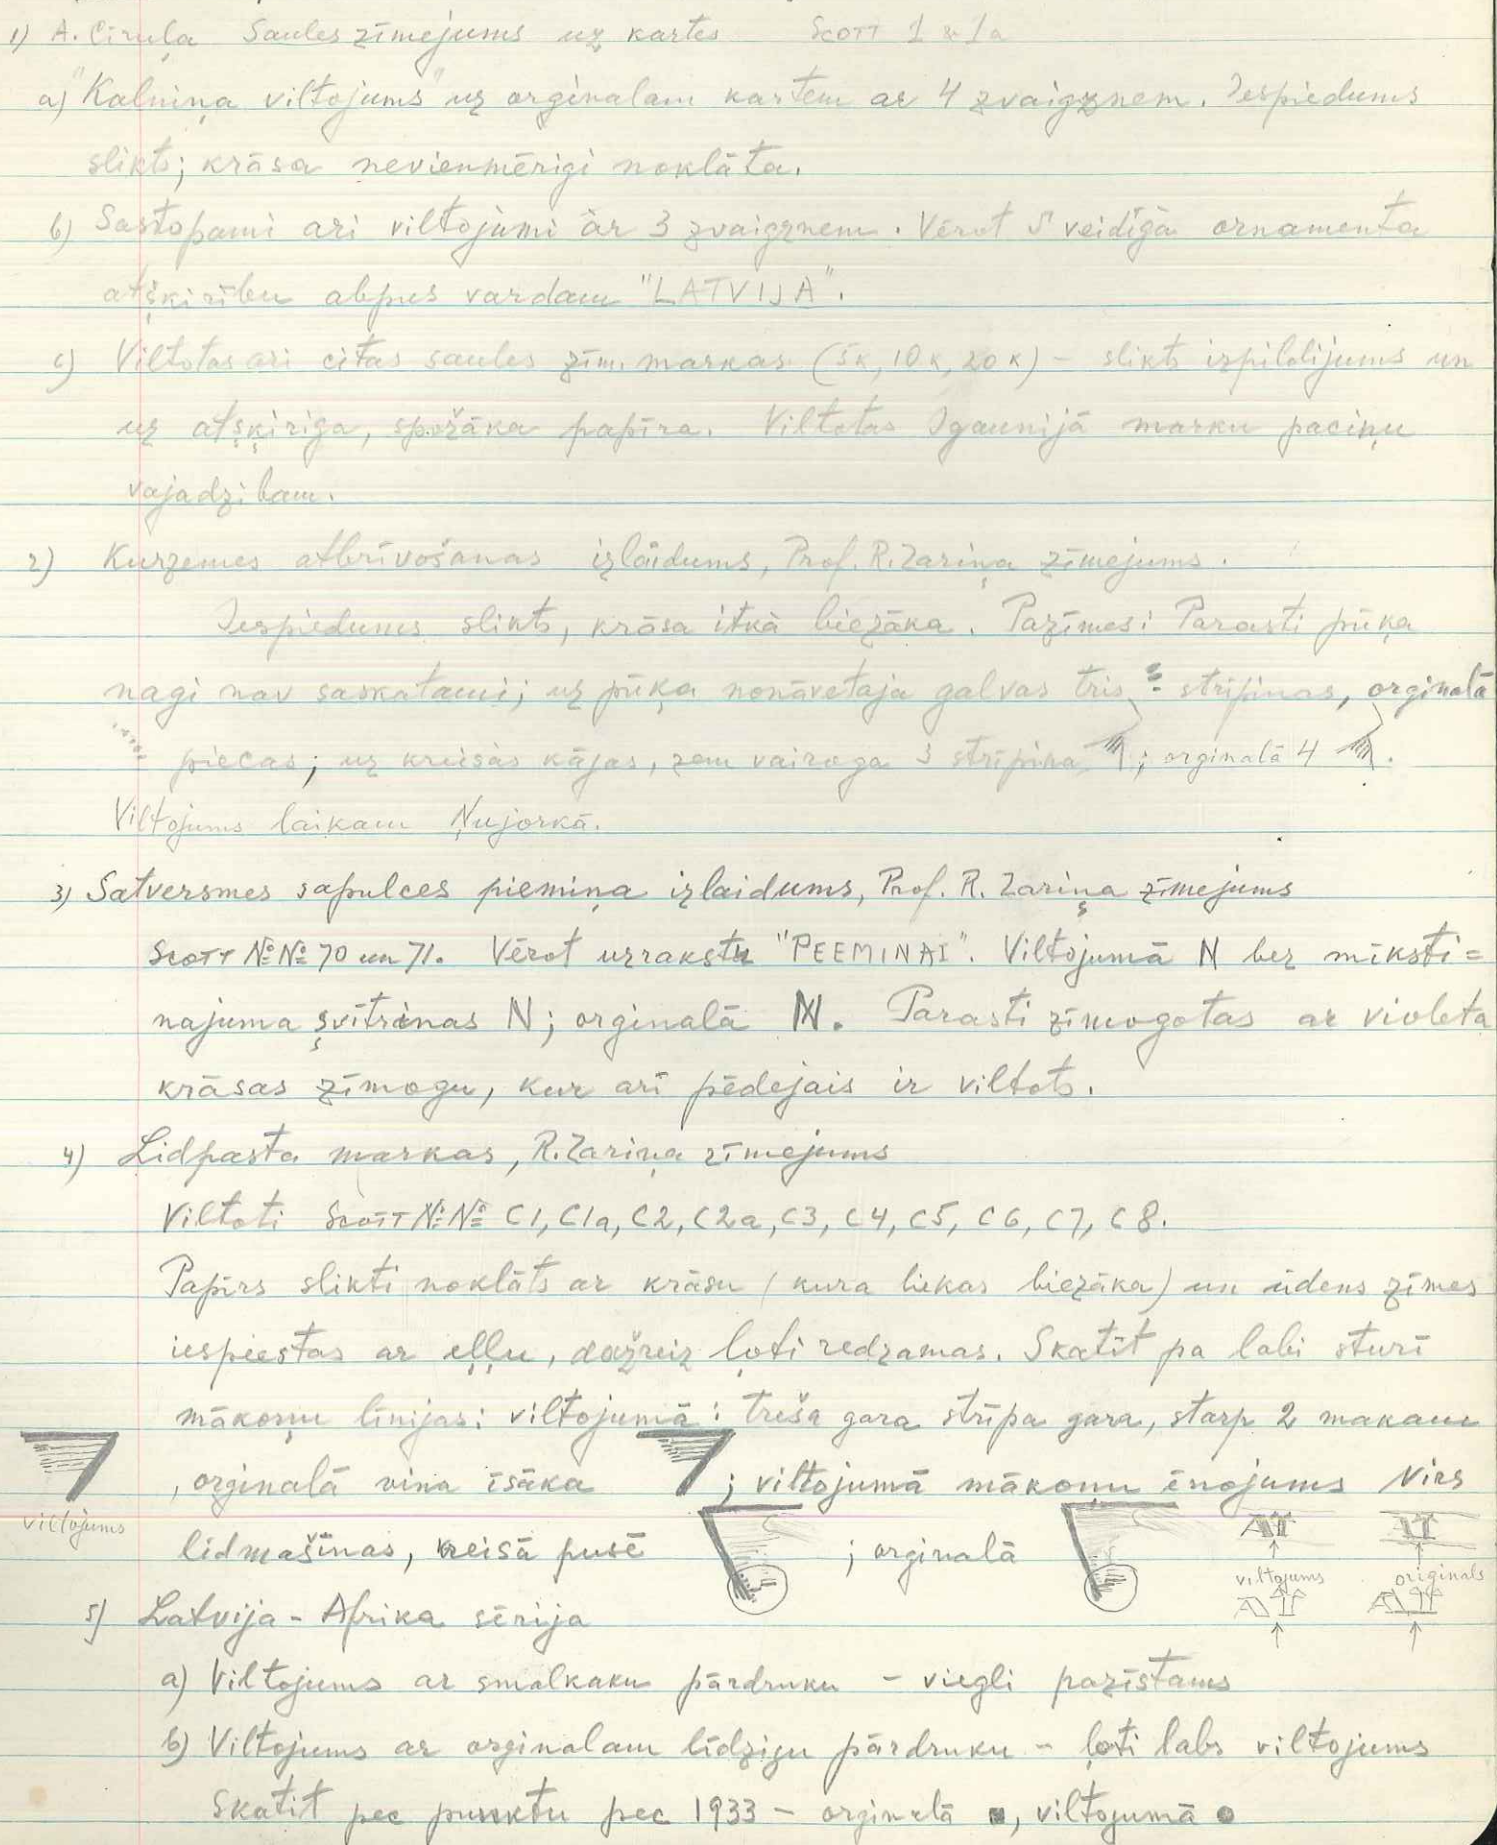 1) A. Ciruļa Saules zīmejums uz kartes Scott 1 & 1a
a) "Kalniņa viltojums" uz orginalam kartem ar 4 zvaigznem. Iespiedums
slikts; krāsa nevienmērigi noklāta.
b) Sastopami ari viltojumi ar 3 zvaigznem. Vērot S veidīgā ornamenta
atšķirību abpus vardam "LATVIJA".
c) Viltotas ari citas saules zīm. markas (5k, 10k, 20k) – slikts izpildijums un
uz atšķiriga, spožāka papīra. Viltotas Igaunijā marku paciņu
vajadzibam.
2) Kurzemes atbrīvošanas izlaidums, Prof. R. Zariņa zīmejums.
Iespiedums slikts, krāsa itkā biezāka. Pazīmes: Parasti pūķa
nagi nav saskatami; uz pūķa nonāvetaja galvas tris stripinas, orginalā
piecas; uz kreisās kājas, zem vairoga 3 stripina; orginalā 4.
Viltojums laikam Ņujorkā.
3) Satversmes sapulces piemiņa izlaidums, Prof. R. Zariņa zīmejums
Scott №№ 70 un 71. Vērot uzrakstu "PEEMINAI". Viltojumā N bez mīksti=
najuma svītrinas N; orginalā N. Parasti zīmogotas ar violeta
krāsas zīmogu, kur arī pēdejais ir viltots.
4) Lidpasta markas, R. Zariņa zīmejums
Viltoti Scott №№ C1, C1a, C2, C2a, C3, C4, C5, C6, C7, C8.
Papīrs slikti noklāts ar krāsu (kura liekas biezāka) un ūdens zīmes
iespiestas ar eļļu, dažreiz ļoti redzamas. Skatīt pa labi sturī
mākoņu līnijas: viltojumā: treša gara strīpa gara, starp 2 makam
, orginalā viņa īsāka ; viltojumā mākoņu ēnojums virs
viltojums
lidmašīnas, kreisā pusē ; orginalā
AT AT
viltojums originals
5) Latvija - Afrika sērija
a) Viltojums ar smalkaku pārdruku – viegli pazīstams
b) Viltojums ar orginalam līdzigu pārdruku – ļoti labs viltojums
Skatit pec punktu pec 1933 – orginalā ■, viltojumā ●